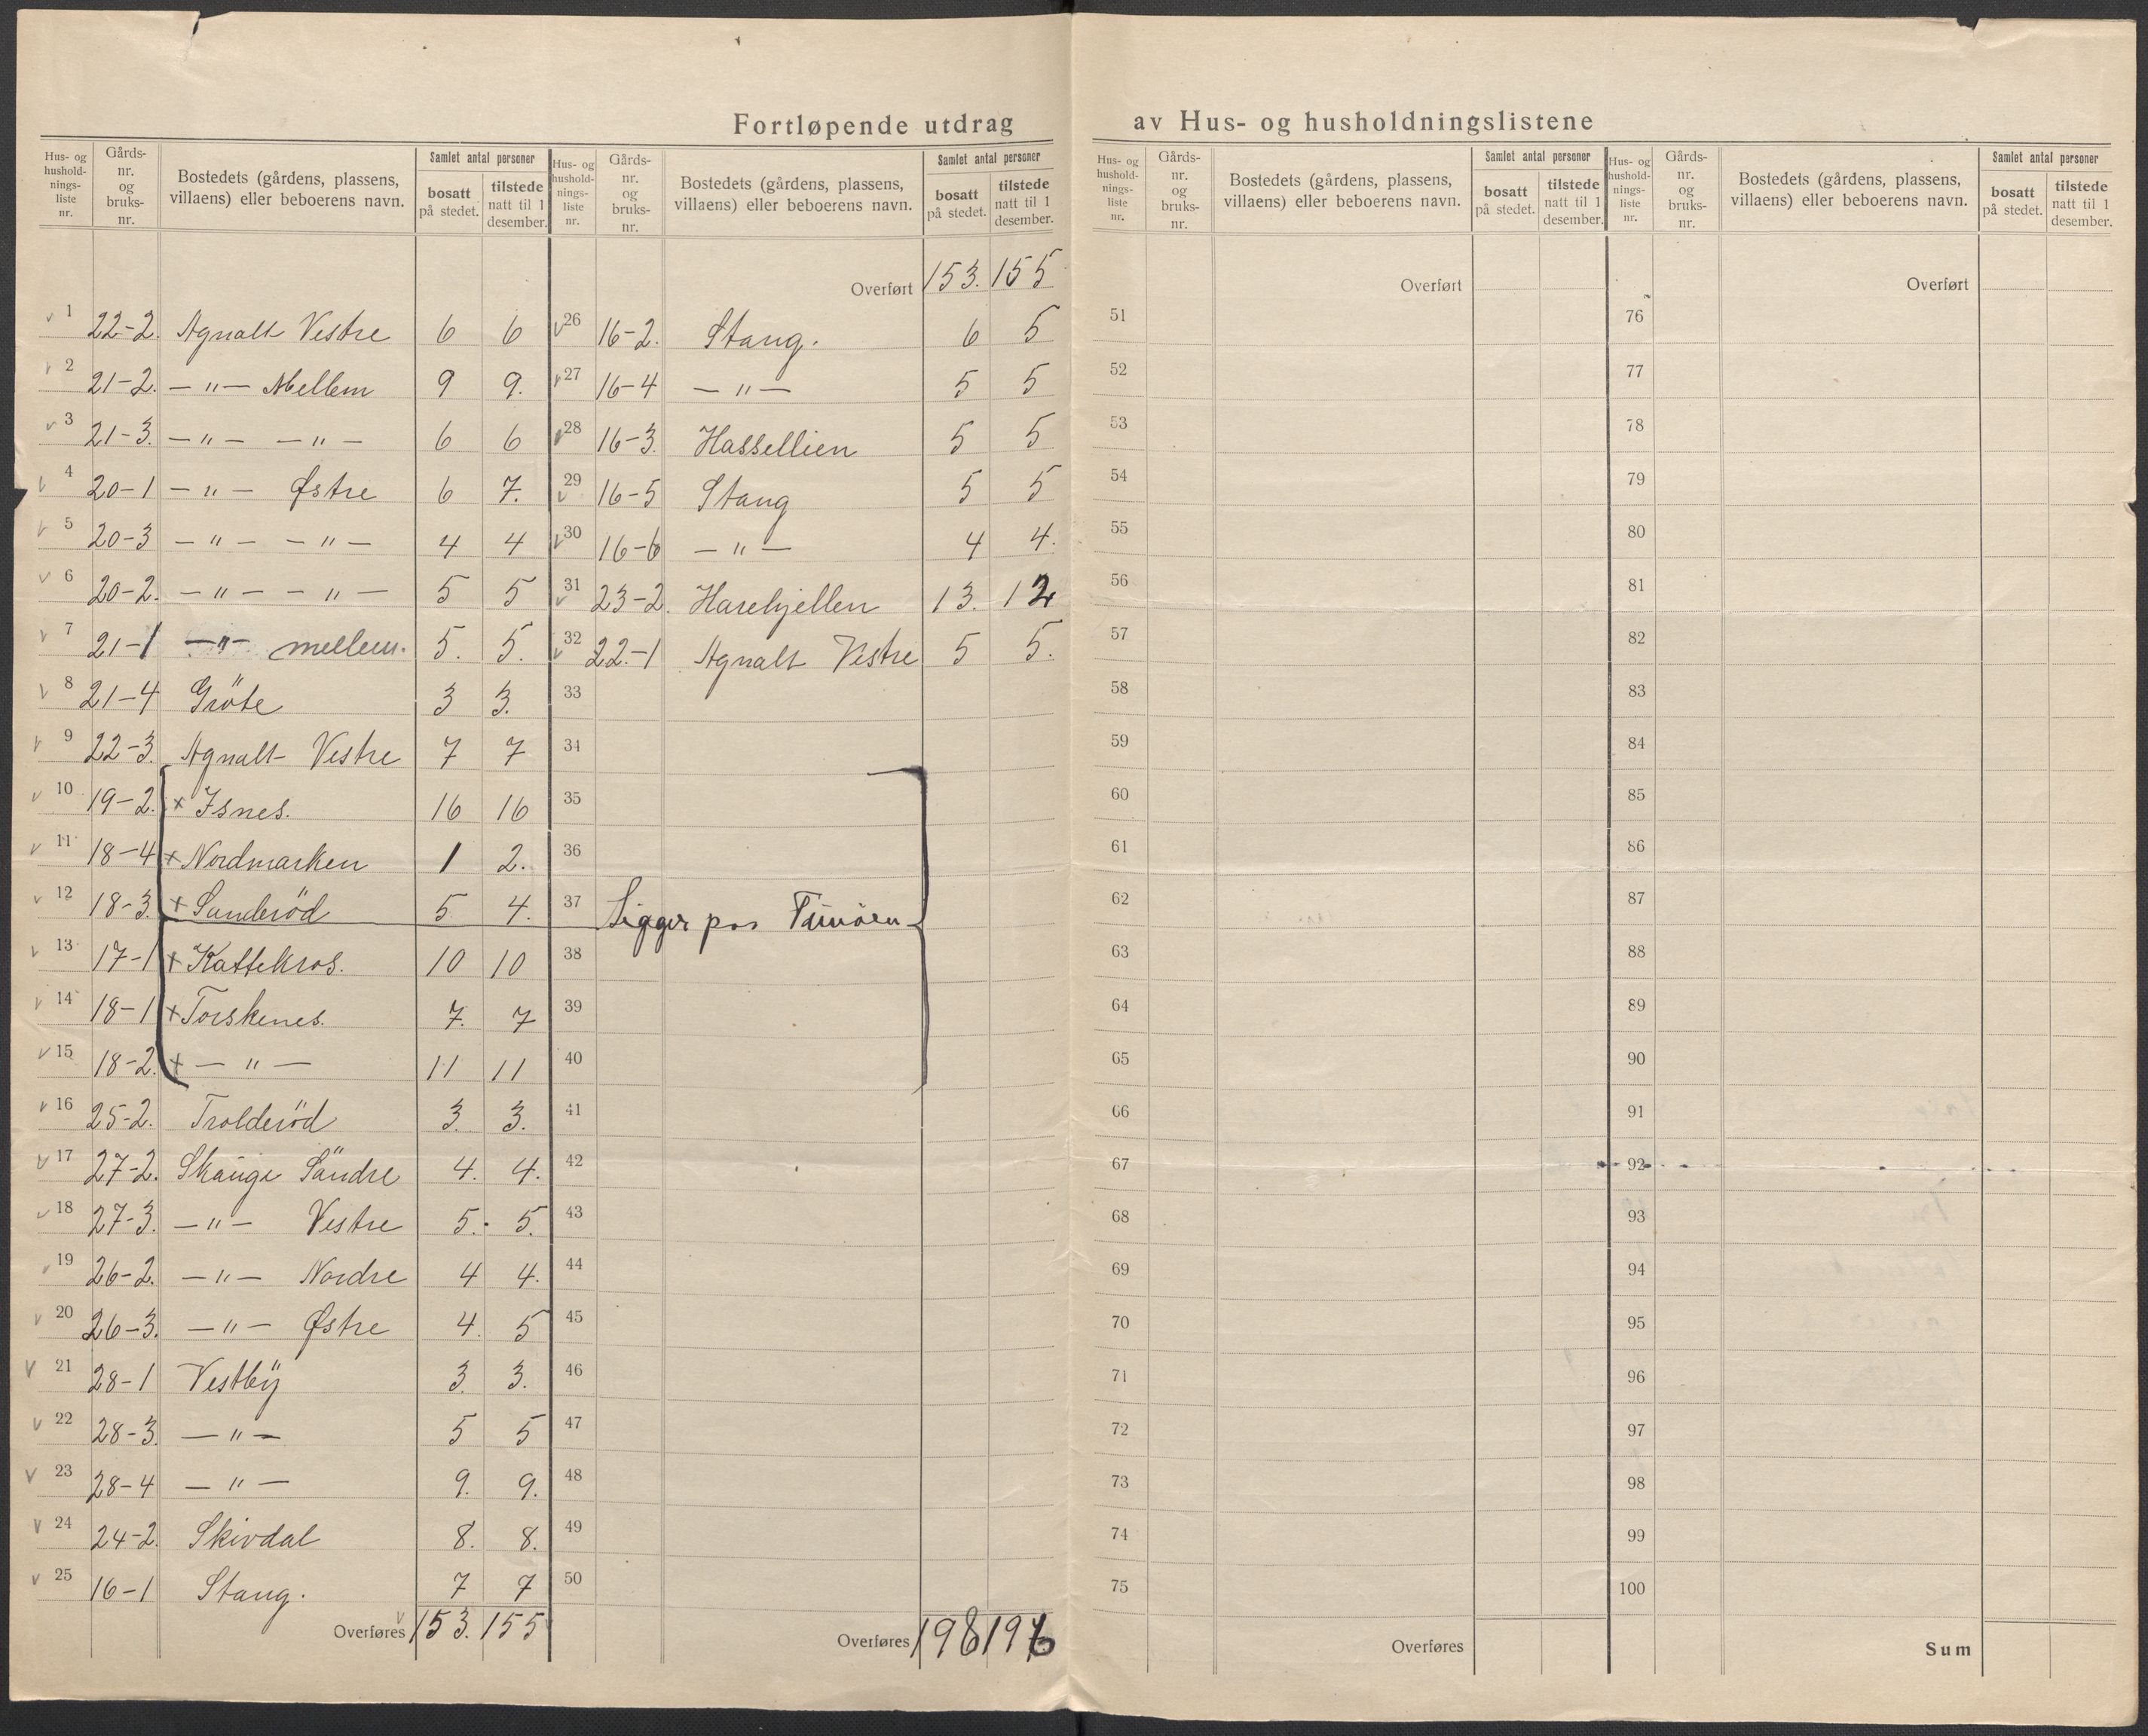 Fortløpende utdrag av Hus- og husholdningslistene
Hus- og hushold-nings-liste nr. Gårds-nr. og bruks-nr. Bostedets (gårdens, plassens, villaens) eller beboerens navn. Samlet antal personer bosatt på stedet. tilstede natt til 1 desember.
1 22-2. Agnalt Vestre 6 6
2 21-2. — " — Mellem 9 9.
3 21-3. — " — — " — 6 6
4 20-1 — " — Østre 6 7.
5 20-3 — " — — " — 4 4
6 20-2. — " — — " — 5 5
7 21-1 — " — mellem. 5. 5.
8 21-4 Gröte 3 3.
9 22-3. Agnalt Vestre 7 7
10 19-2. x Isnes. 16 16
11 18-4 x Nordmarken 1 2.
12 18-3. x Sanderöd 5 4.
13 17-1 x Kattekros. 10 10
14 18-1 x Torskenes. 7. 7
15 18-2. x — " — 11 11
16 25-2. Trolderöd 3. 3.
17 27-2. Skauge Söndre 4. 4.
18 27-3. — " — Vestre 5. 5.
19 26-2. — " — Nordre 4 4.
20 26-3. — " — Østre 4. 5
21 28-1 Vestby 3. 3.
22 28-3. — " — 5 5
23 28-4 — " — 9. 9.
24 24-2. Skivdal 8. 8.
25 16-1 Stang. 7 7
Overføres 153. 155
Hus- og hushold-nings-liste nr. Gårds-nr. og bruks-nr. Bostedets (gårdens, plassens, villaens) eller beboerens navn. Samlet antal personer bosatt på stedet. tilstede natt til 1 desember.
Overført 153. 155
26 16-2. Stang. 6 5
27 16-4 — " — 5 5
28 16-3. Hassellien 5 5
29 16-5 Stang 5 5
30 16-6 — " — 4 4.
31 23-2. Harehjellen 13. 12
32 22-1 Agnalt Vestre 5 5.
33
34
35
36
37 Ligger paa
38
39
40
41
42
43
44
45
46
47
48
49
50
Overføres 198 196
Hus- og hushold-nings-liste nr. Gårds-nr. og bruks-nr. Bostedets (gårdens, plassens, villaens) eller beboerens navn. Samlet antal personer bosatt på stedet. tilstede natt til 1 desember.
Overført
51
52
53
54
55
56
57
58
59
60
61
62
63
64
65
66
67
68
69
70
71
72
73
74
75
Overføres
Hus- og hushold-nings-liste nr. Gårds-nr. og bruks-nr. Bostedets (gårdens, plassens, villaens) eller beboerens navn. Samlet antal personer bosatt på stedet. tilstede natt til 1 desember.
Overført
76
77
78
79
80
81
82
83
84
85
86
87
88
89
90
91
92
93
94
95
96
97
98
99
100
Sum